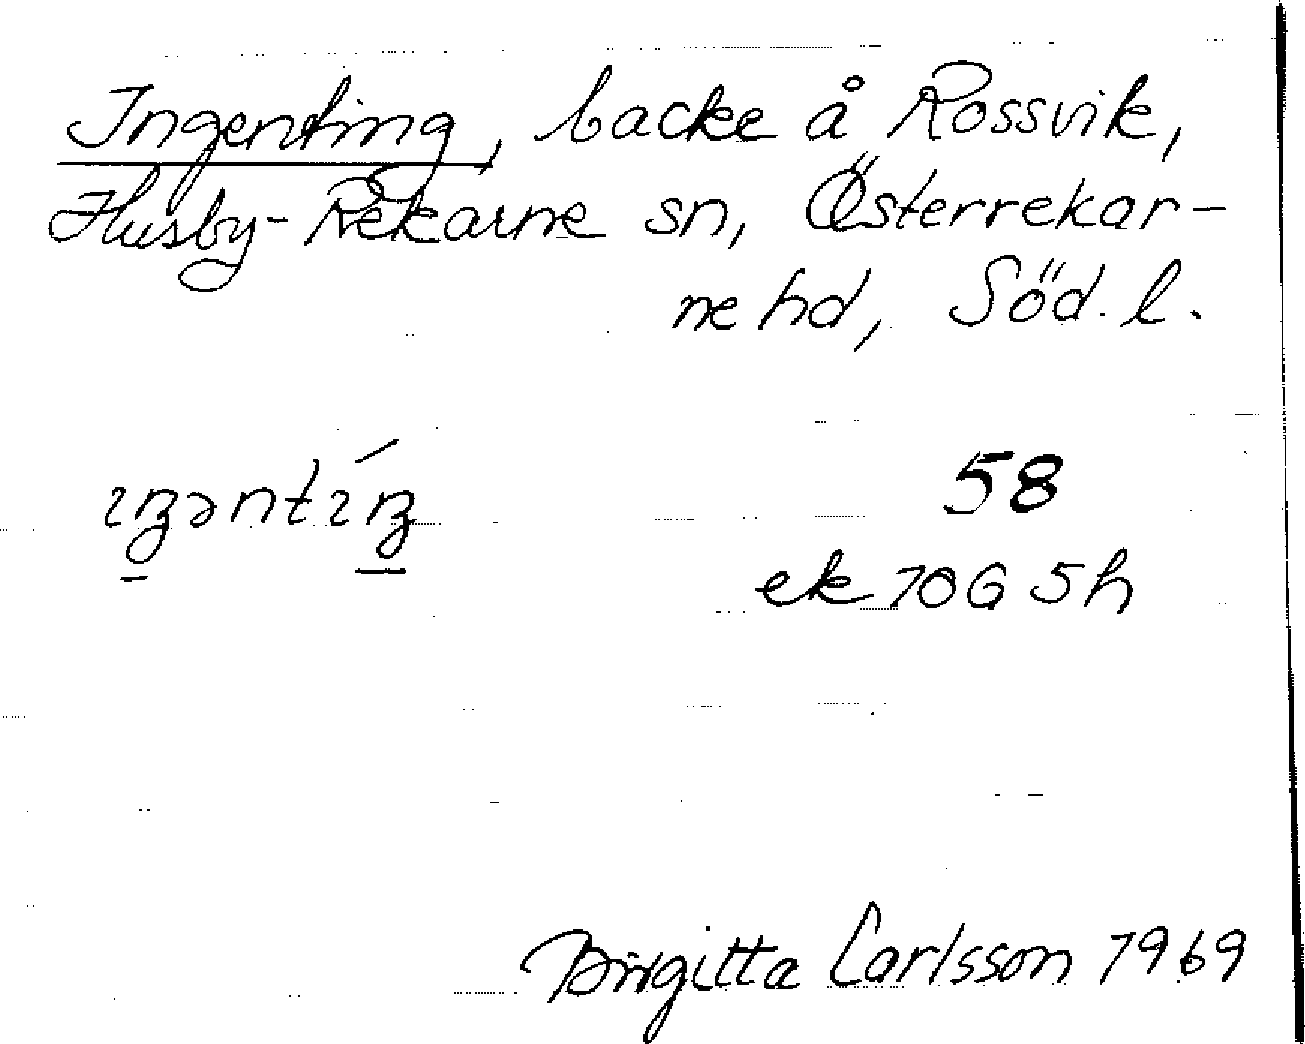 Ingenting, backe å Rossvik,
Husby-Rekarne sn, Österrekar-
ne hd, Söd. l.
ıŋəntíŋ
58
ek 10G 5h
Birgitta Carlsson 1969